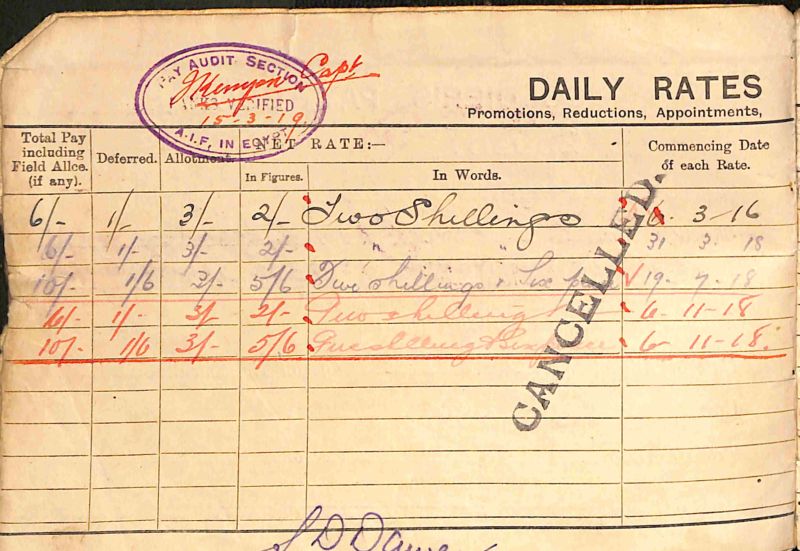 PAY AUDIT SECTION
Capt
RANKS VERIFIED
15-3-19
A.I.F. IN EGYPT
DAILY RATES
Promotions, Reductions, Appointments,
Total Pay including Field Allce. (if any). Deferred. Allotment. NET RATE:— Commencing Date of each Rate.
In Figures. In Words.
6/- 1/- 3/- 2/- Two Shillings 6. 3-16
6/- 1/- 3/- 2/- " " 31 3. 18
10/- 1/6 3/- 5/6 Five shillings & Six 19. 7.18
6/- 1/- 3/- 2/- Two shillings 6. 11-18
10/- 1/6 3/- 5/6 6 11-18.
CANCELLED.